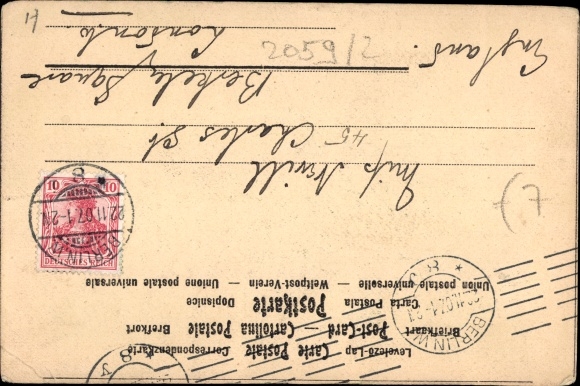 Correspondenzkarte Carte Postale Levelezö-Lap
Brefkort Cartolina Postale Post-Card Briefkaart
Dopisnice Postkarte Carta Postala
Union postale universelle — Weltpost-Verein — Unione postale universale
10 10
DEUTSCHES REICH
BERLIN.W
22.11.07.1-2N
* 8
BERLIN W
* 8
8
Miss
45 Charles St
Berkeley Square
London
England.
2059/2
(7
17